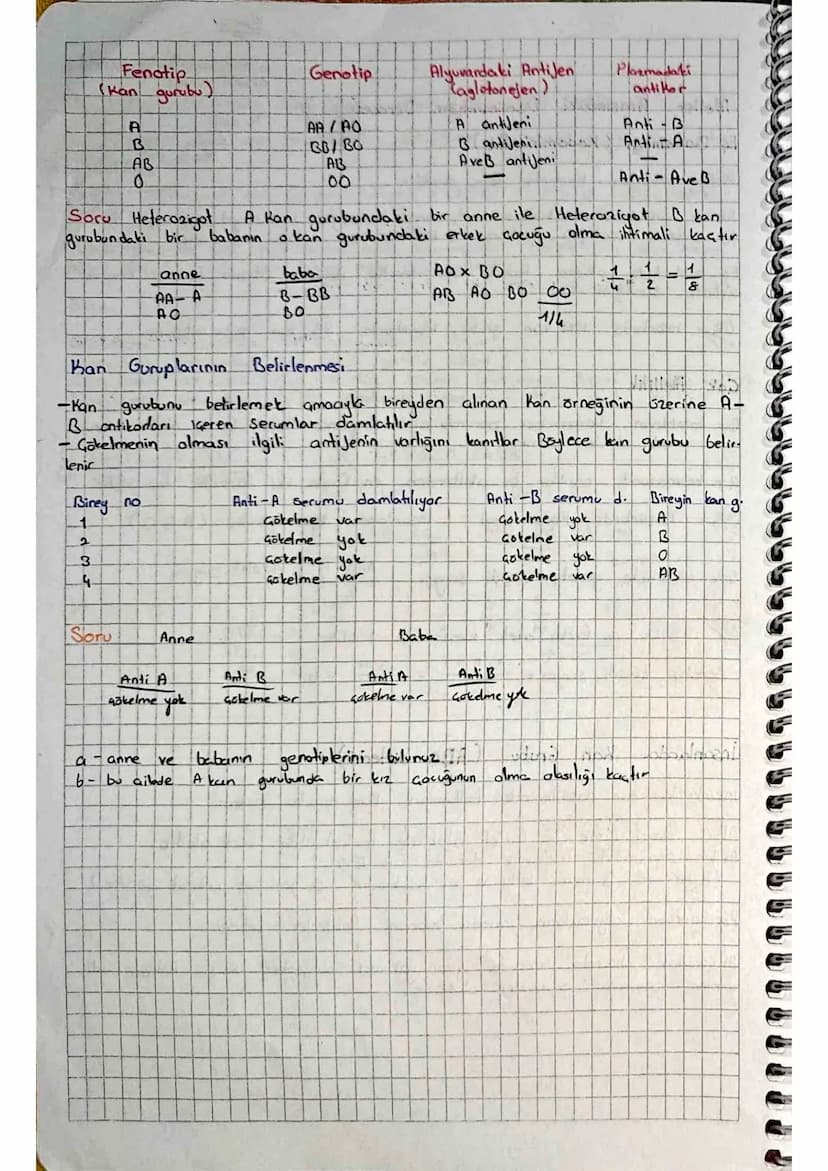 Fenotip Genotip Alyuvardaki Antijen Plazmadaki
(Kan gurubu) (aglotonejen) antikor
A AA / AO A antijeni Anti - B
B BB / BO B antijeni Anti - A
AB AB A ve B antijeni —
O OO — Anti - A ve B
Soru Heterozigot A Kan gurubundaki bir anne ile Heterozigot B kan
gurubundaki bir babanın o kan gurubundaki erkek çocuğu olma ihtimali kaçtır
anne baba AO x BO 1/4 . 1/2 = 1/8
AA - A B - BB AB AO BO OO
AO BO 1/4
Kan Guruplarının Belirlenmesi
- Kan gurubunu belirlemek amacıyla bireyden alınan kan örneğinin üzerine A-
B antikorları içeren serumlar damlatılır
- Çökelmenin olması ilgili antijenin varlığını kanıtlar Böylece kan gurubu belir-
lenir
Birey no Anti - A serumu damlatılıyor Anti - B serumu d. Bireyin kan g.
1 Çökelme var Çökelme yok A
2 Çökelme yok Çökelme var B
3 Çökelme yok Çökelme yok O
4 Çökelme var Çökelme var AB
Soru Anne Baba
Anti A Anti B Anti A Anti B
çökelme yok çökelme var çökelme var çökelme yok
a - anne ve babanın genotiplerini bulunuz
b - bu ailede A kan gurubunda bir kız çocuğunun olma olasılığı kaçtır